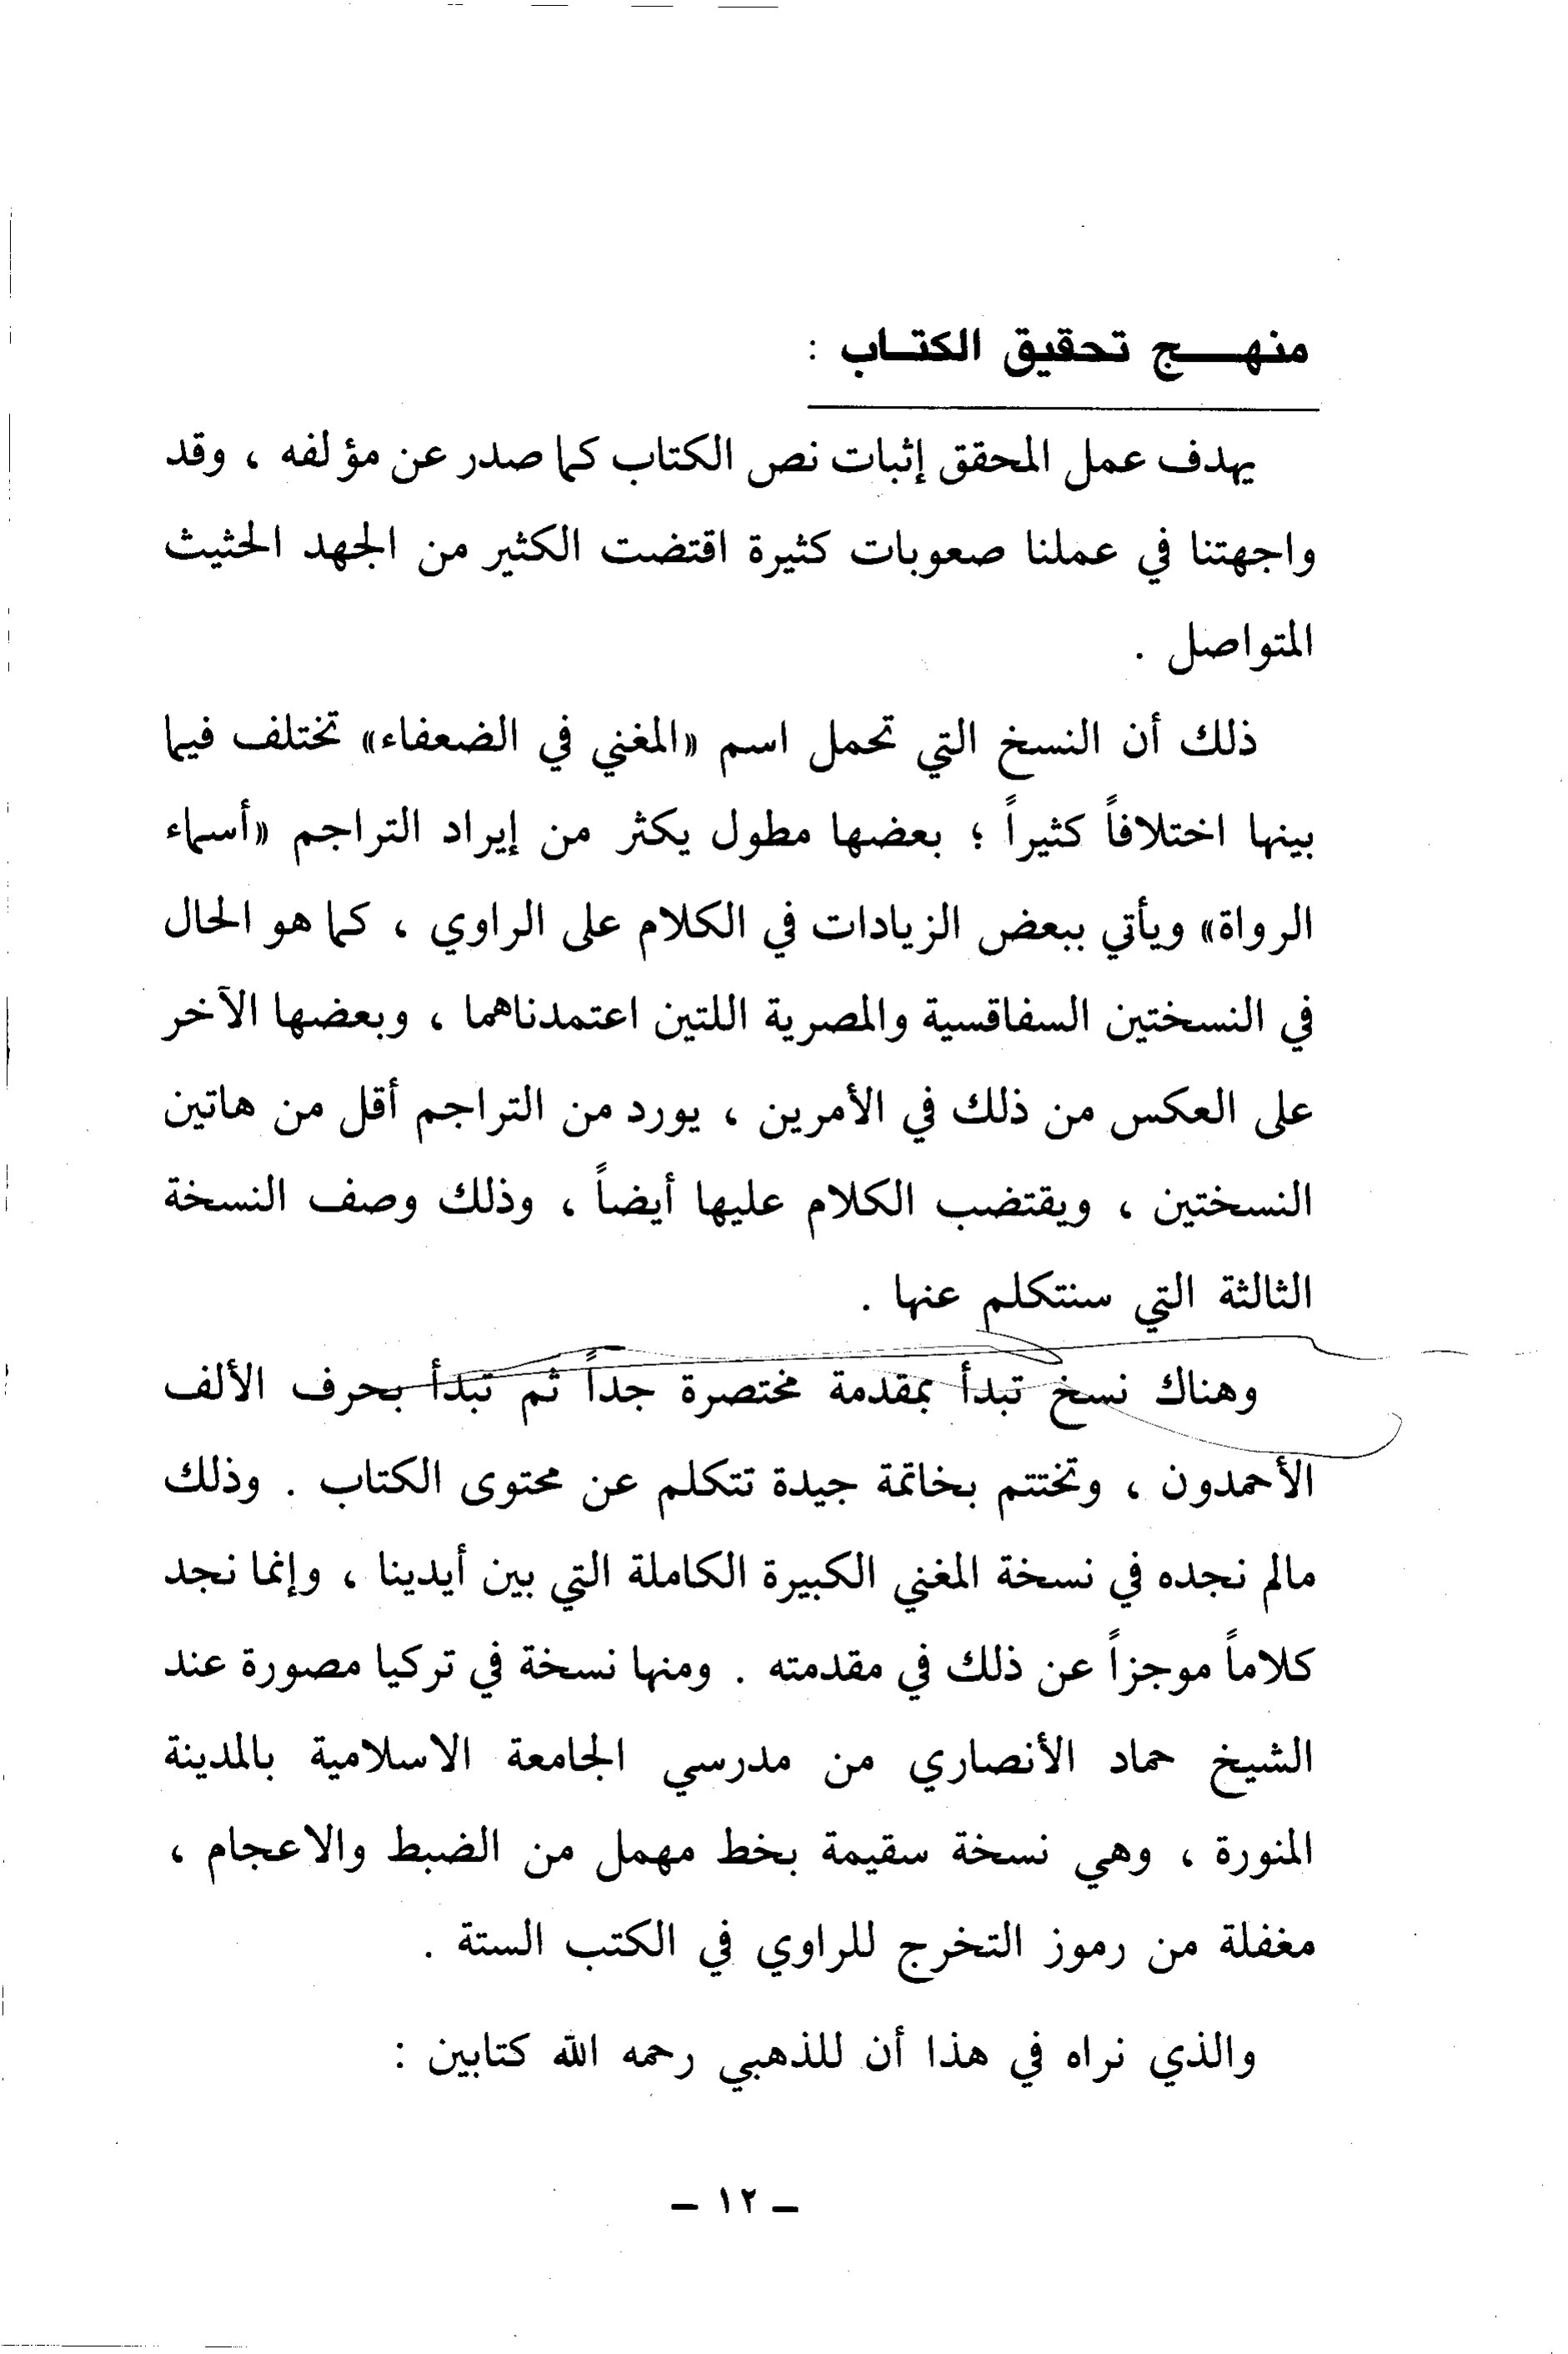 منهج تحقيق الكتاب :
يهدف عمل المحقق إثبات نص الكتاب كما صدر عن مؤلفه ، وقد
واجهتنا في عملنا صعوبات كثيرة اقتضت الكثير من الجهد الحثيث
المتواصل .
ذلك أن النسخ التي تحمل اسم «المغني في الضعفاء» تختلف فيما
بينها اختلافاً كثيراً ؛ بعضها مطول يكثر من إيراد التراجم «أسماء
الرواة» ويأتي ببعض الزيادات في الكلام على الراوي ، كما هو الحال
في النسختين السفاقسية والمصرية اللتين اعتمدناهما ، وبعضها الآخر
على العكس من ذلك في الأمرين ، يورد من التراجم أقل من هاتين
النسختين ، ويقتضب الكلام عليها أيضاً ، وذلك وصف النسخة
الثالثة التي سنتكلم عنها .
وهناك نسخ تبدأ بمقدمة مختصرة جداً ثم تبدأ بحرف الألف
الأحمدون ، وتختتم بخاتمة جيدة تتكلم عن محتوى الكتاب . وذلك
مالم نجده في نسخة المغني الكبيرة الكاملة التي بين أيدينا ، وإنما نجد
كلاماً موجزاً عن ذلك في مقدمته . ومنها نسخة في تركيا مصورة عند
الشيخ حماد الأنصاري من مدرسي الجامعة الاسلامية بالمدينة
المنورة ، وهي نسخة سقيمة بخط مهمل من الضبط والاعجام ،
مغفلة من رموز التخرج للراوي في الكتب الستة .
والذي نراه في هذا أن للذهبي رحمه الله كتابين :
– ١٢ –